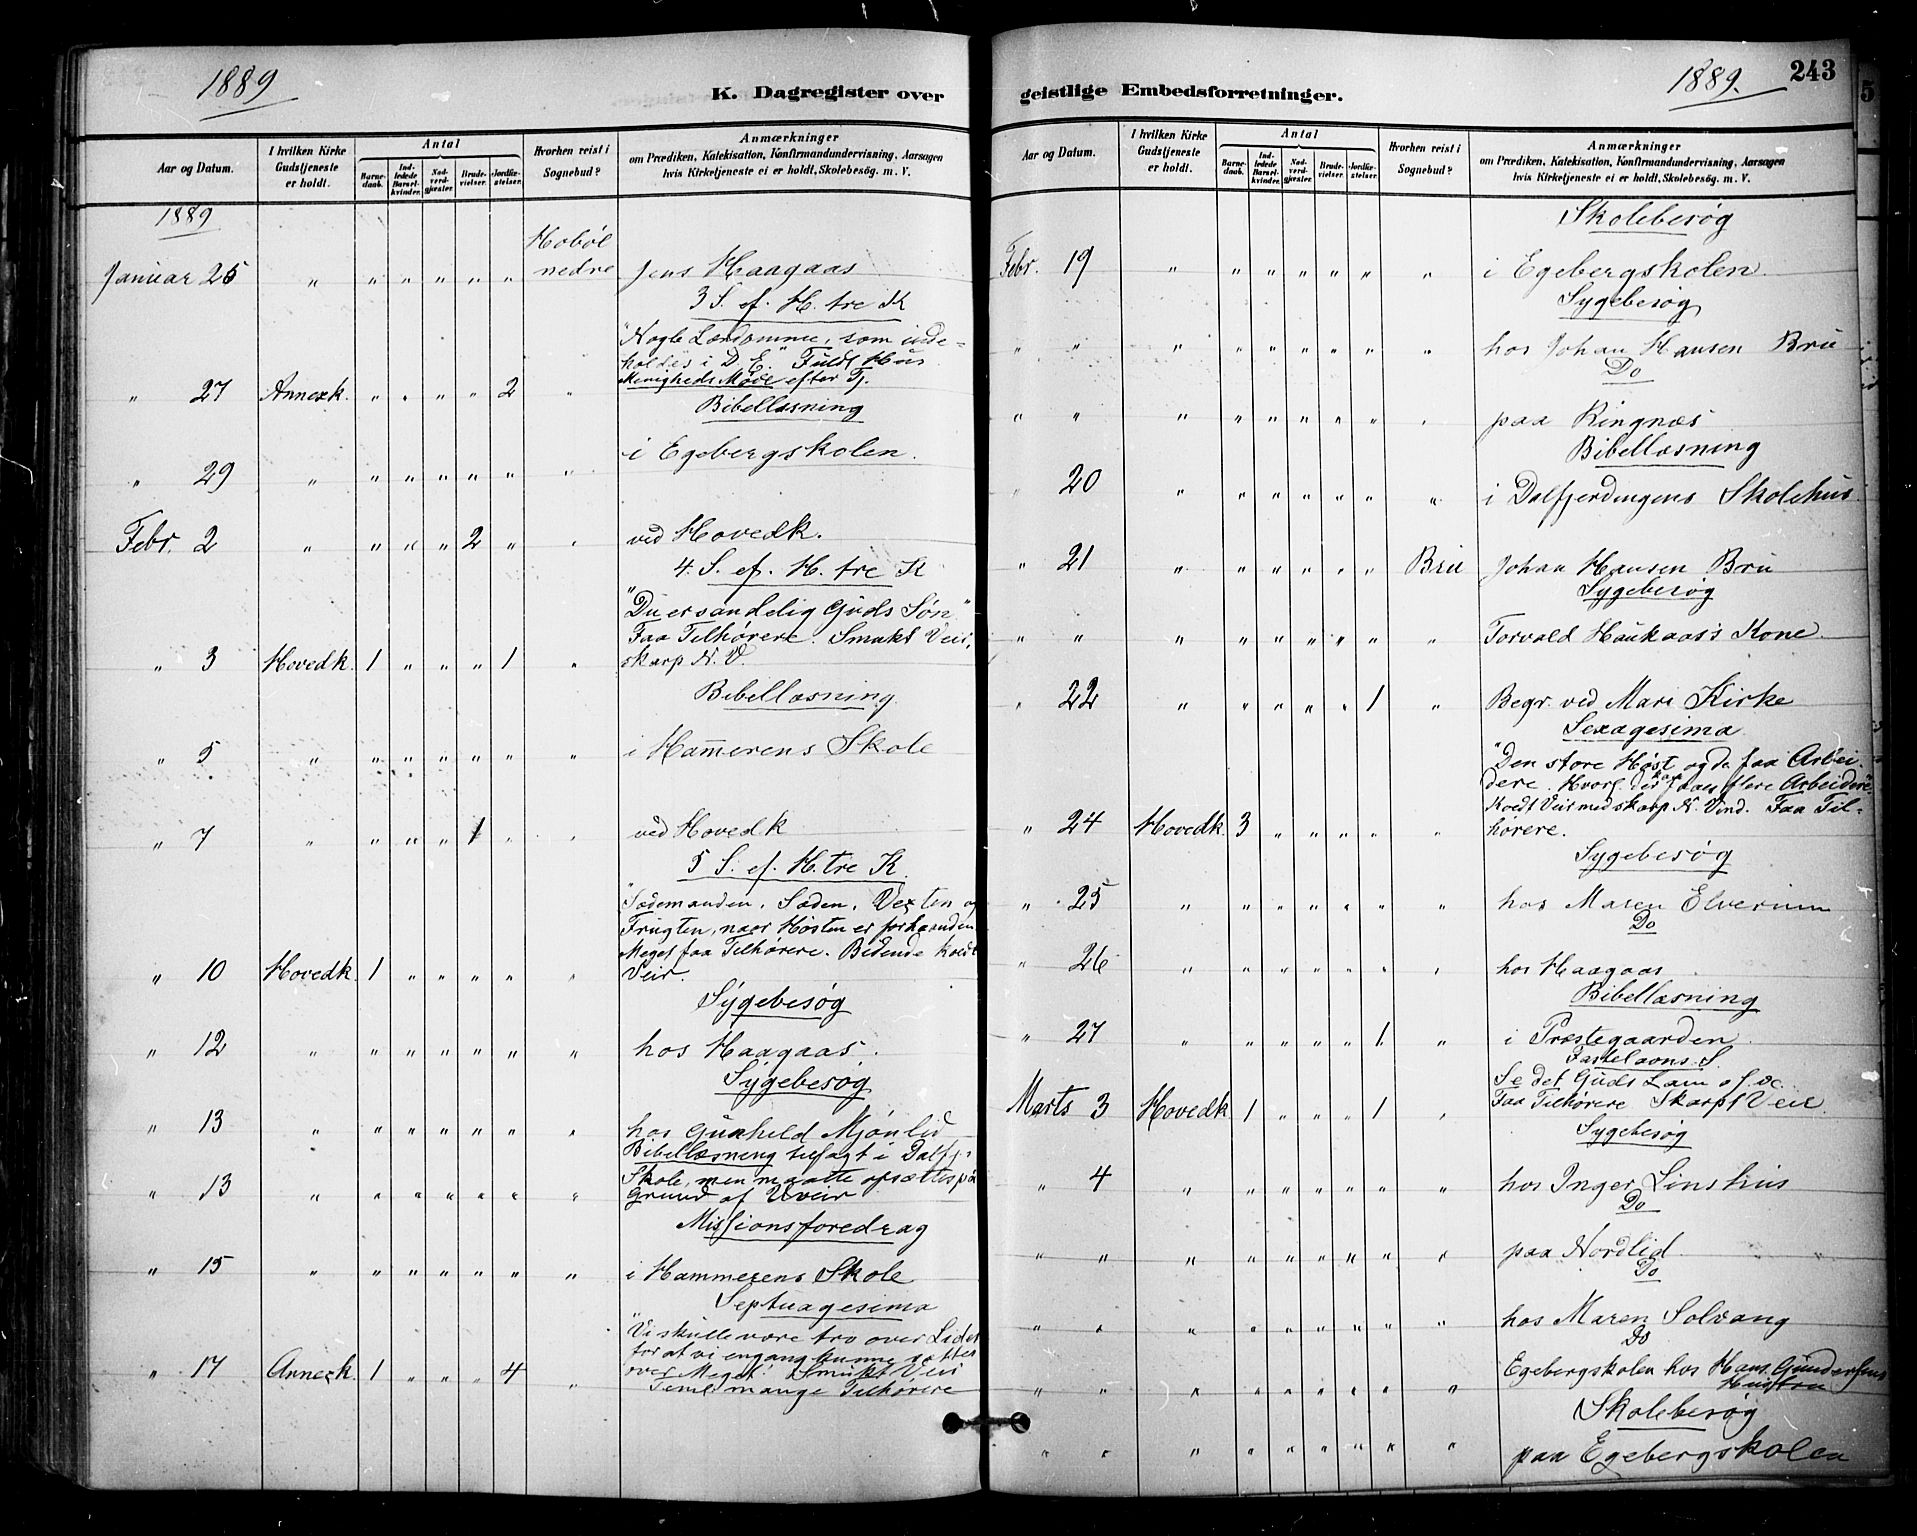 1889
K. Dagregister over
Aar og Datum.
I hvilken Kirke Gudstjeneste er holdt.
Antal
Barnedaab.
Indledede Barselkvinder.
Nadverdgjester.
Brudevielser.
Jordfæstelser.
Hvorhen reist i Sognebud?
Anmærkninger
om Prædiken, Katekisation, Konfirmandundervisning, Aarsagen
hvis Kirketjeneste ei er holdt, Skolebesøg m. V.
1889
Hobøl
Januar 25 " " " " " " nedre Jens Haagaas
3 S. ef. H. tre K
"Nogle Lærdomme, som inde-
holdes i D. E." Fuldt Hus
Menigheds Møde efter Tj.
" 27 Annexk. " " " " 2 "
Bibellæsning
i Egebergskolen.
" 29 " " " " " " "
Febr. 2 " " " " 2 " " ved Hovedk.
4. S. ef. H. tre K
"Du er sandelig Guds Søn"
Faa Tilhørere. Smukt Veir,
" 3 Hovedk. 1 " " " 1 " skarp N. V.
Bibellæsning
" 5 " " " " " " " i Hamerens Skole
" 7 " " " " 1 " " ved Hovedk
5 S. ef. H. tre K.
"Sædemanden, Sæden, Vexten og
Frugten, naar Høsten er forhaanden
Meget faa Tilhørere. Bidende koldt
" 10 Hovedk 1 " " " " " Veir.
Sygebesøg
" 12 " " " " " " " hos Haagaas.
Sygebesøg
" 13 " " " " " " " hos Gunhild Mjönlid
Bibellæsning tilsagt i Dalfj.
Skole, men maatte opsættes på
" 13 " " " " " " " Grund af Uveir
Missionsforedrag
" 15 " " " " " " " i Hammerens Skole
Septuagesima
"Vi skulle være tro over Lidet
for at vi engang kunne sættes
over Meget." Smukt Veir
" 17 Annexk. 1 " " " 4 " Teml. mange Tilhørere
geistlige Embedsforretninger.
1889.
243
Aar og Datum.
I hvilken Kirke Gudstjeneste er holdt.
Antal
Barnedaab.
Indledede Barselkvinder.
Nadverdgjester.
Brudevielser.
Jordfæstelser.
Hvorhen reist i Sognebud?
Anmærkninger
om Prædiken, Katekisation, Konfirmandundervisning, Aarsagen
hvis Kirketjeneste ei er holdt, Skolebesøg m. V.
Skolebesøg
Febr. 19 " " " " " " " i Egebergskolen.
Sygebesøg
" " " " " " " " " hos Johan Hansen Bru
Do
" " " " " " " " " paa Ringnæs
Bibellæsning
" 20 " " " " " " " i Dalfjerdingens Skolehus
" 21 " " " " " " Bru Johan Hansen Bru
Sygebesøg
" " " " " " " " " Torvald Haukaas's Kone.
" 22 " " " " " 1 " Begr. ved Mari Kirke
Sexagesima
"Den store Høst og de faa Arbei-
dere. Hvorl. der kan faaes flere Arbeidere"
Koldt Veir med skarp N. Vind. Faa Til-
" 24 Hovedk. 3 " " " " " hørere.
Sygebesøg
" 25 " " " " " " " hos Maren Elverum
Do
" 26 " " " " " " " hos Haagaas
Bibellæsning
" 27 " " " " " 1 " i Præstegaarden.
Fastelavns. S.
Se det Guds Lam o. s. v.
Marts 3 Hovedk 1 " " " 1 " Faa Tilhørere Skarpt Veir.
Sygebesøg
" 4 " " " " " " " hos Inger Linshus
Do
" " " " " " " " " paa Nordlid.
Do
" " " " " " " " " hos Maren Solvang
Do
Egebergskolen hos Hans Gundersens
" " " " " " " " " Hustru
Skolebesøg
" " " " " " " " " paa Egebergskolen
5